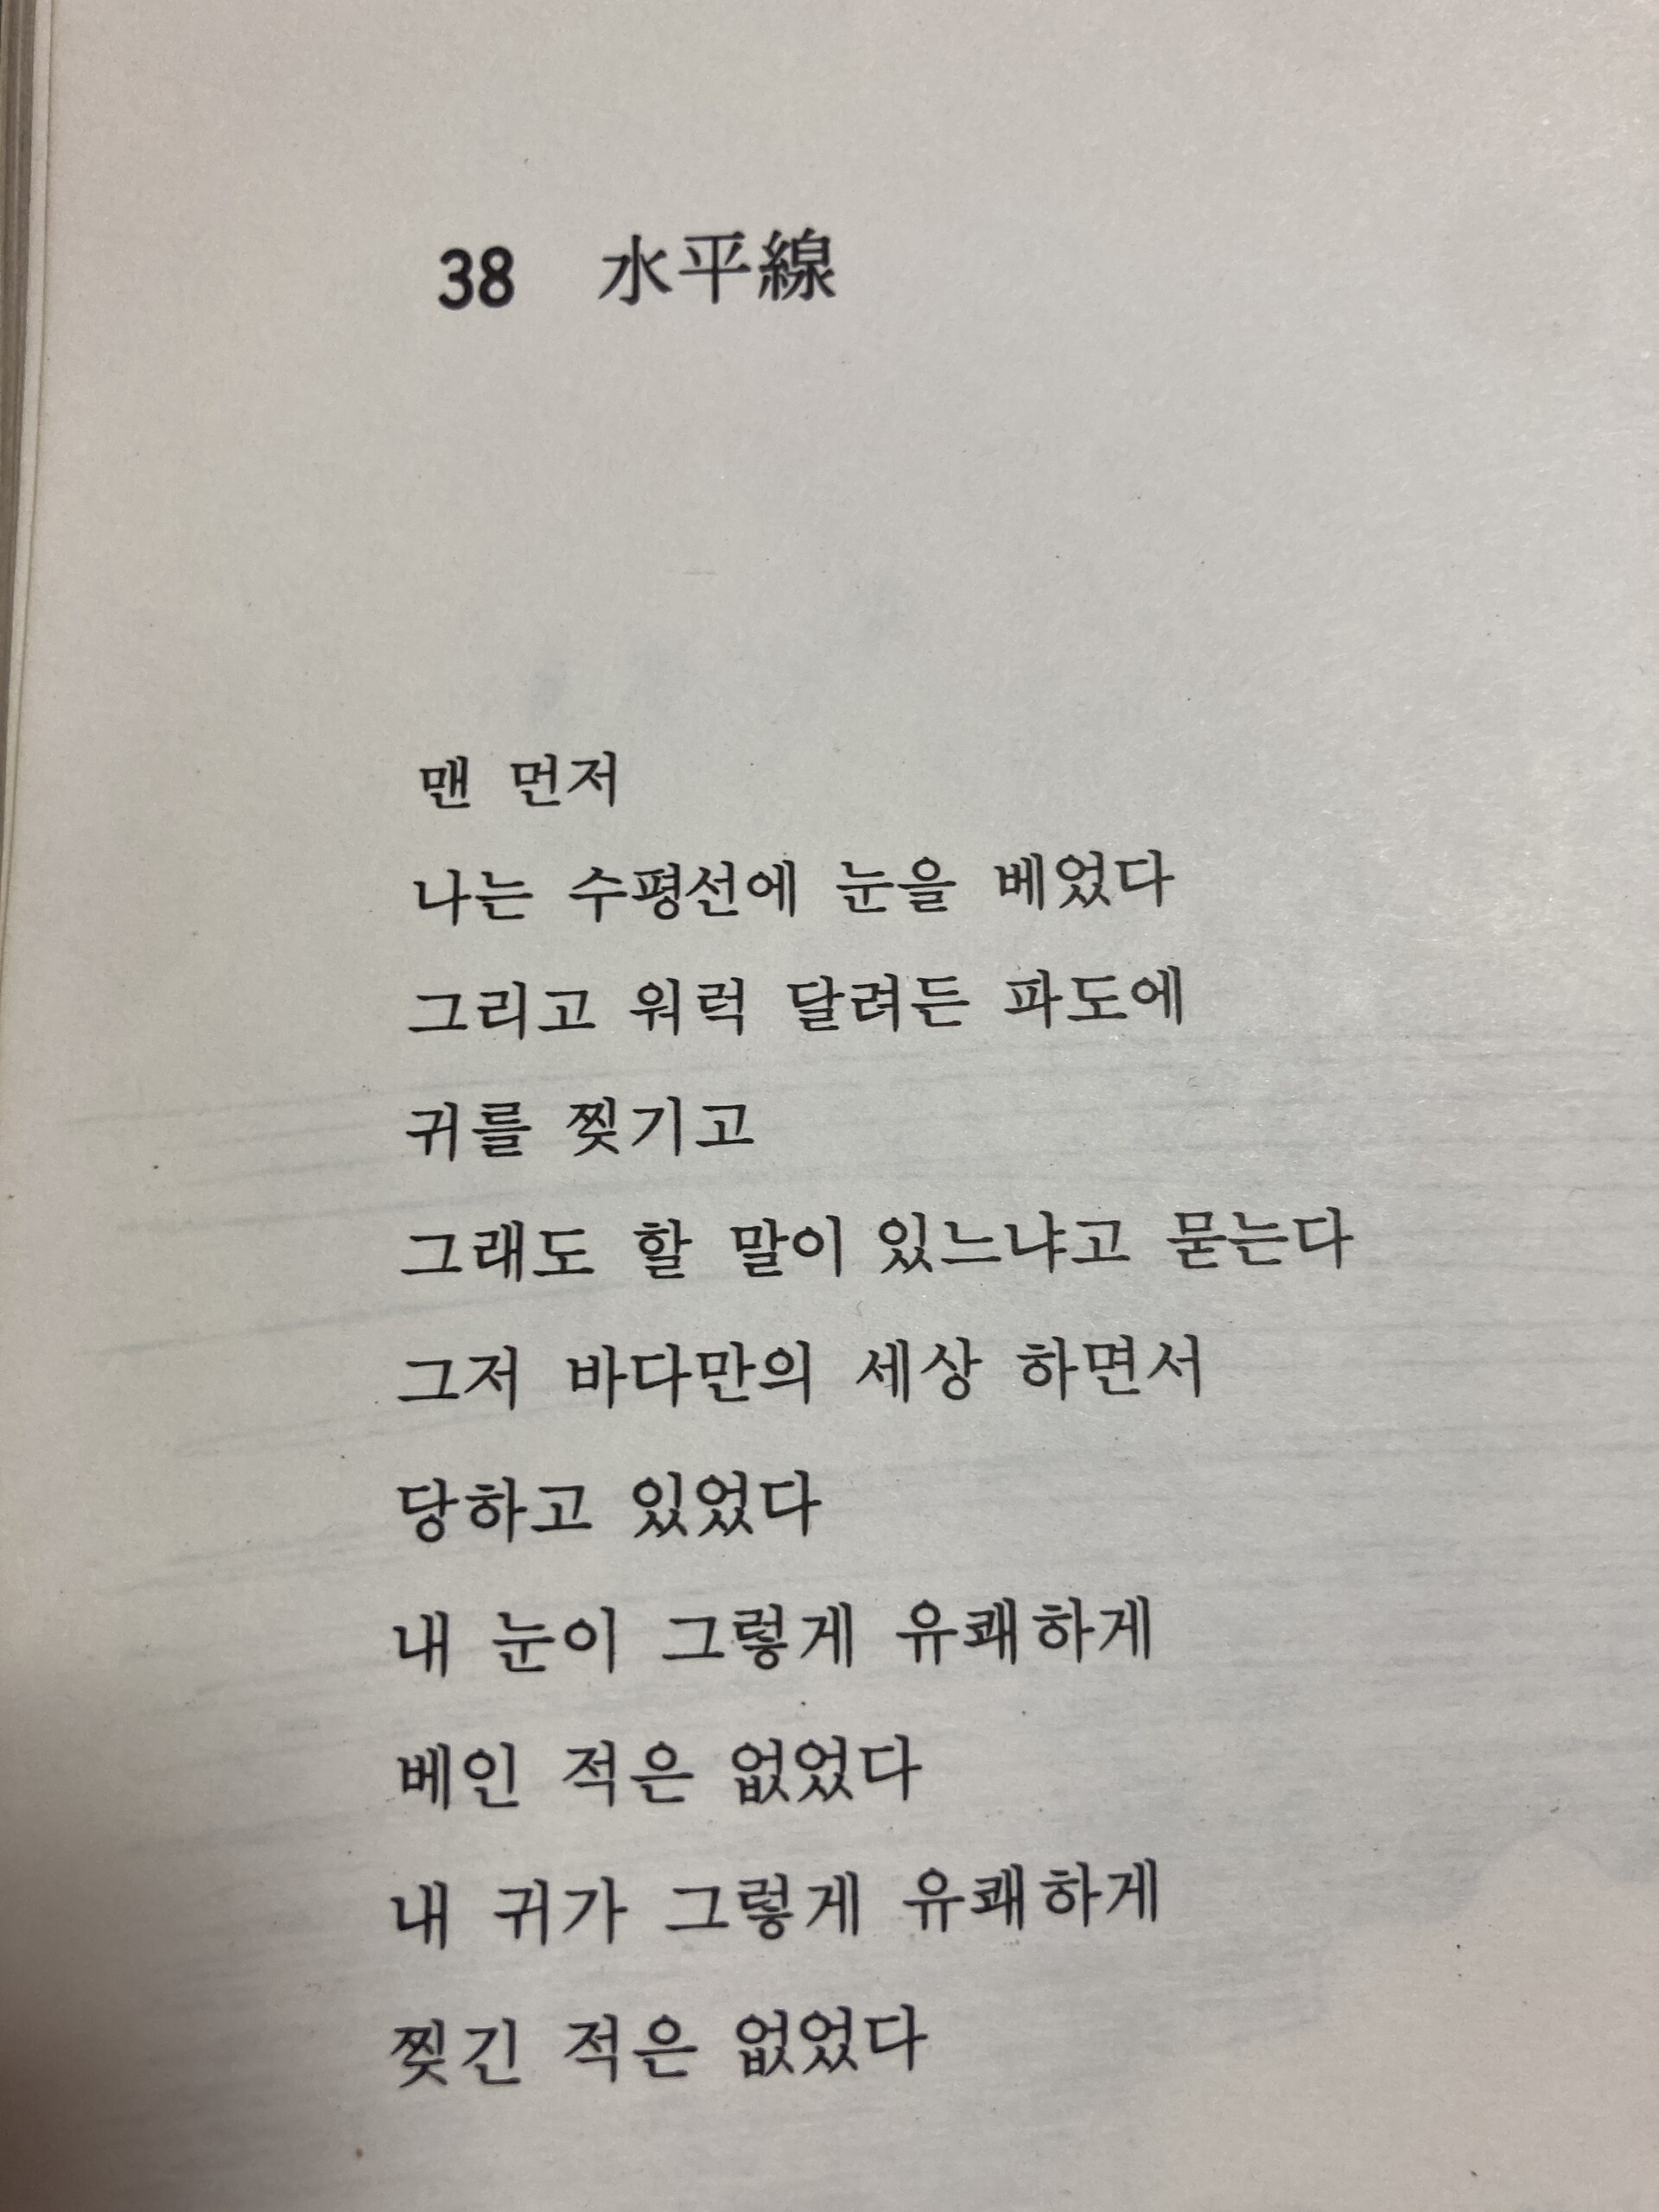 38 水平線
맨 먼저
나는 수평선에 눈을 베었다
그리고 워럭 달려든 파도에
귀를 찢기고
그래도 할 말이 있느냐고 묻는다
그저 바다만의 세상 하면서
당하고 있었다
내 눈이 그렇게 유쾌하게
베인 적은 없었다
내 귀가 그렇게 유쾌하게
찢긴 적은 없었다